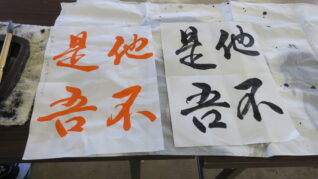 他不
是吾
他不
是吾